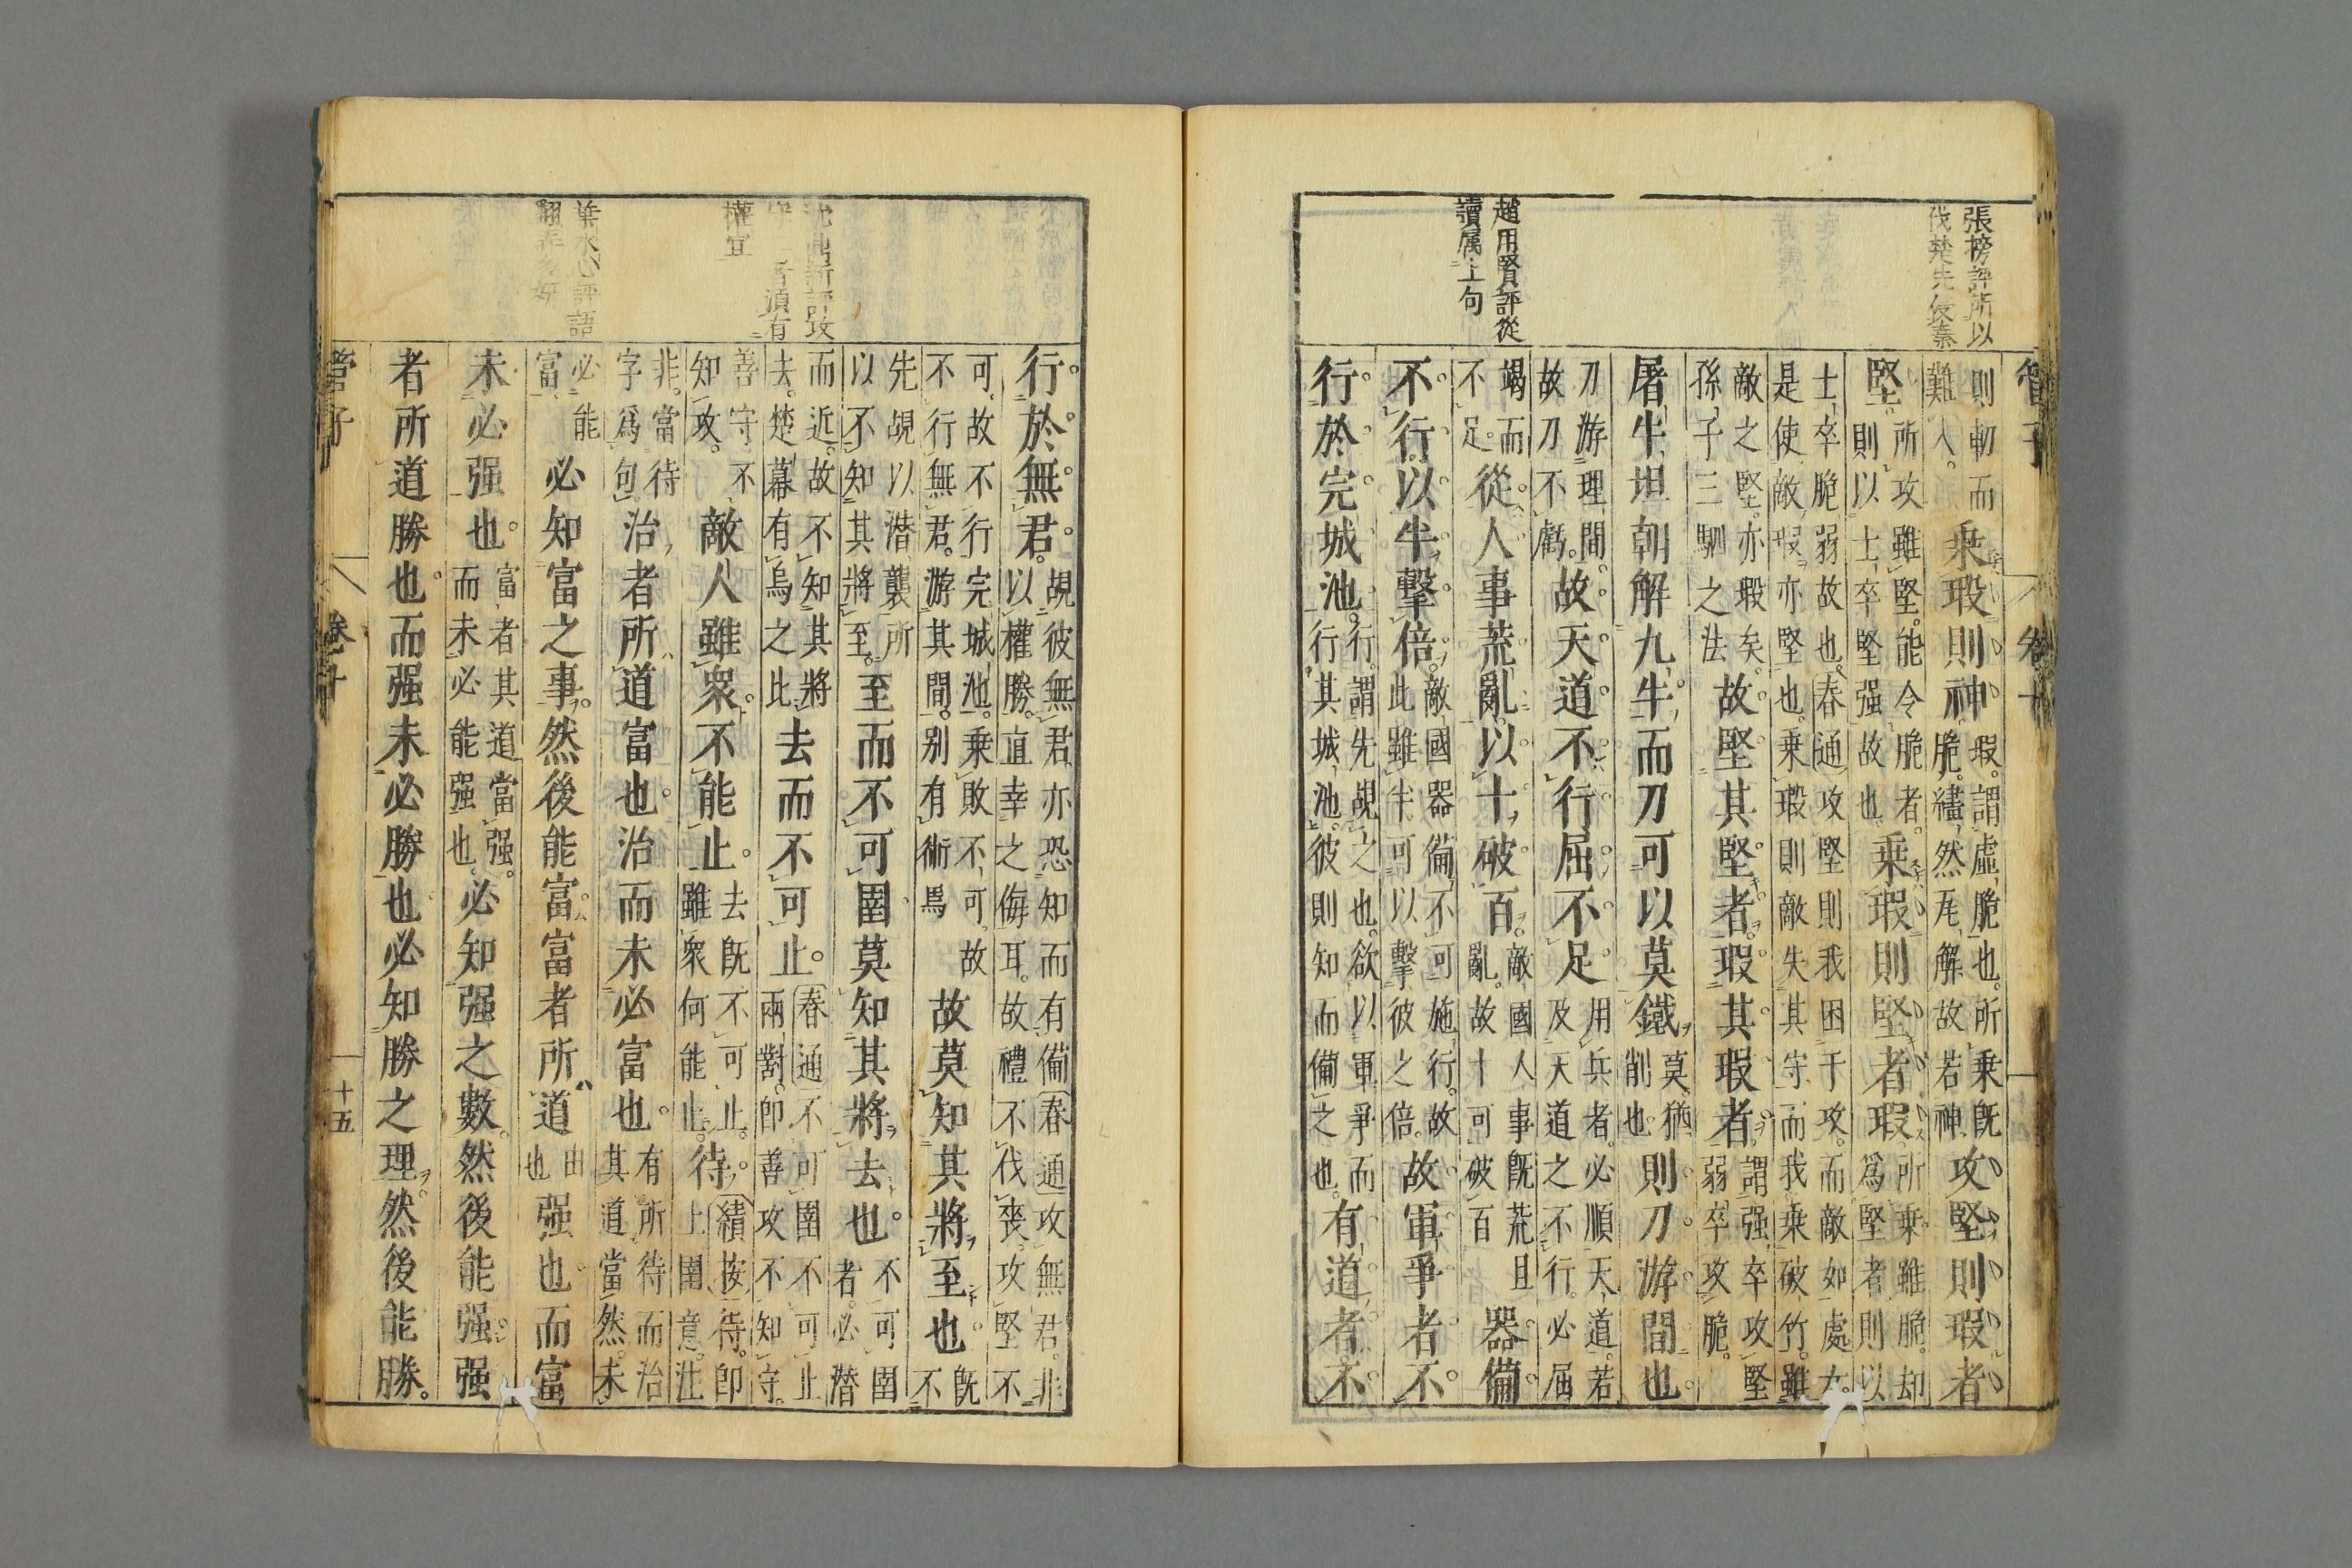 管子
卷十
張榜評所以
伐楚先侵秦
趙用賢評從
讀屬上句
則軔而
難入。
乘瑕則神。
瑕。謂虛脆也。所乘既
脆。𦆯然瓦解故若神
攻堅則瑕者
堅。
所攻雖堅。能令脆者。
則以士卒堅强故也。
乘瑕則堅者瑕
所乘雖脆。却
爲堅者則以
士卒脆弱故也春通攻堅則我困于攻。而敵如處女。
是使敵瑕亦堅也。乘瑕則敵失其守而我乘破竹。雖
敵之堅。亦瑕矣。
孫子三駟之法
故堅其堅者。瑕其瑕者
謂强卒攻堅
弱卒攻脆。
屠牛坦朝解九牛而刀可以莫鐵
莫。猶
削也
則刀游間也
刀游理間。
故刀不虧。
故天道不行。屈不足
用兵者。必順天道。若
及天道之不行。必屈
竭而
不足。
從人事荒亂。以十破百。
敵國人事既荒且
亂。故十可破百
器備
不行。以半擊倍。
敵國器備不可施行。故
此雖半。可以擊彼之倍。
故軍爭者不
行於完城池。
行。謂先覘之也。欲以軍爭而
行其城池。彼則知而備之也。
有道者不
行於無君。
覘彼無君亦恐知而有備春通攻無君。非
以權勝。直幸之侮耳。故禮不伐喪。攻堅不
可。故不行完城池。乘敗不可。故
不行無君。游其間。别有術焉
故莫知其將至也
既
不
先覘以潜襲所
以不知其將至。
至而不可圍莫知其將去也
不可圍
者。必潜
而近。故不知其將
去。楚幕有烏之此
去而不可止。
春通不可圍不可止
兩對。卽善攻不知守。
善守不
知攻。
敵人雖衆。不能止
去既不可止。
雖衆何能止。
待
績按待。卽
上圍意。注
非。當待
字爲句。
治者所道富也。治而未必富也
有所待而治
其道當然。未
必能
富
必知富之事。然後能富。富者所道
由
也
强也而富
未必强也。
富者其道當强。
而未必能强也。
必知强之數。然後能强。强
者所道勝也。而强未必勝也必知勝之理。然後能勝。
沈鼎新評攻
須有
權宜
葉水心評語
管子
卷十
十五